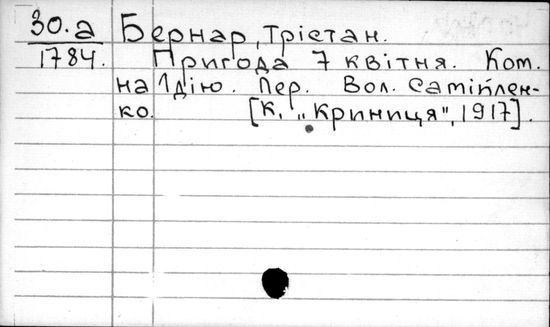 30.а Бернар, Трістан.
1784. Пригода 7 квітня. Ком.
на 1 дію. Пер. Вол. Самійлен-
ко. [К. „Криниця", 1917].